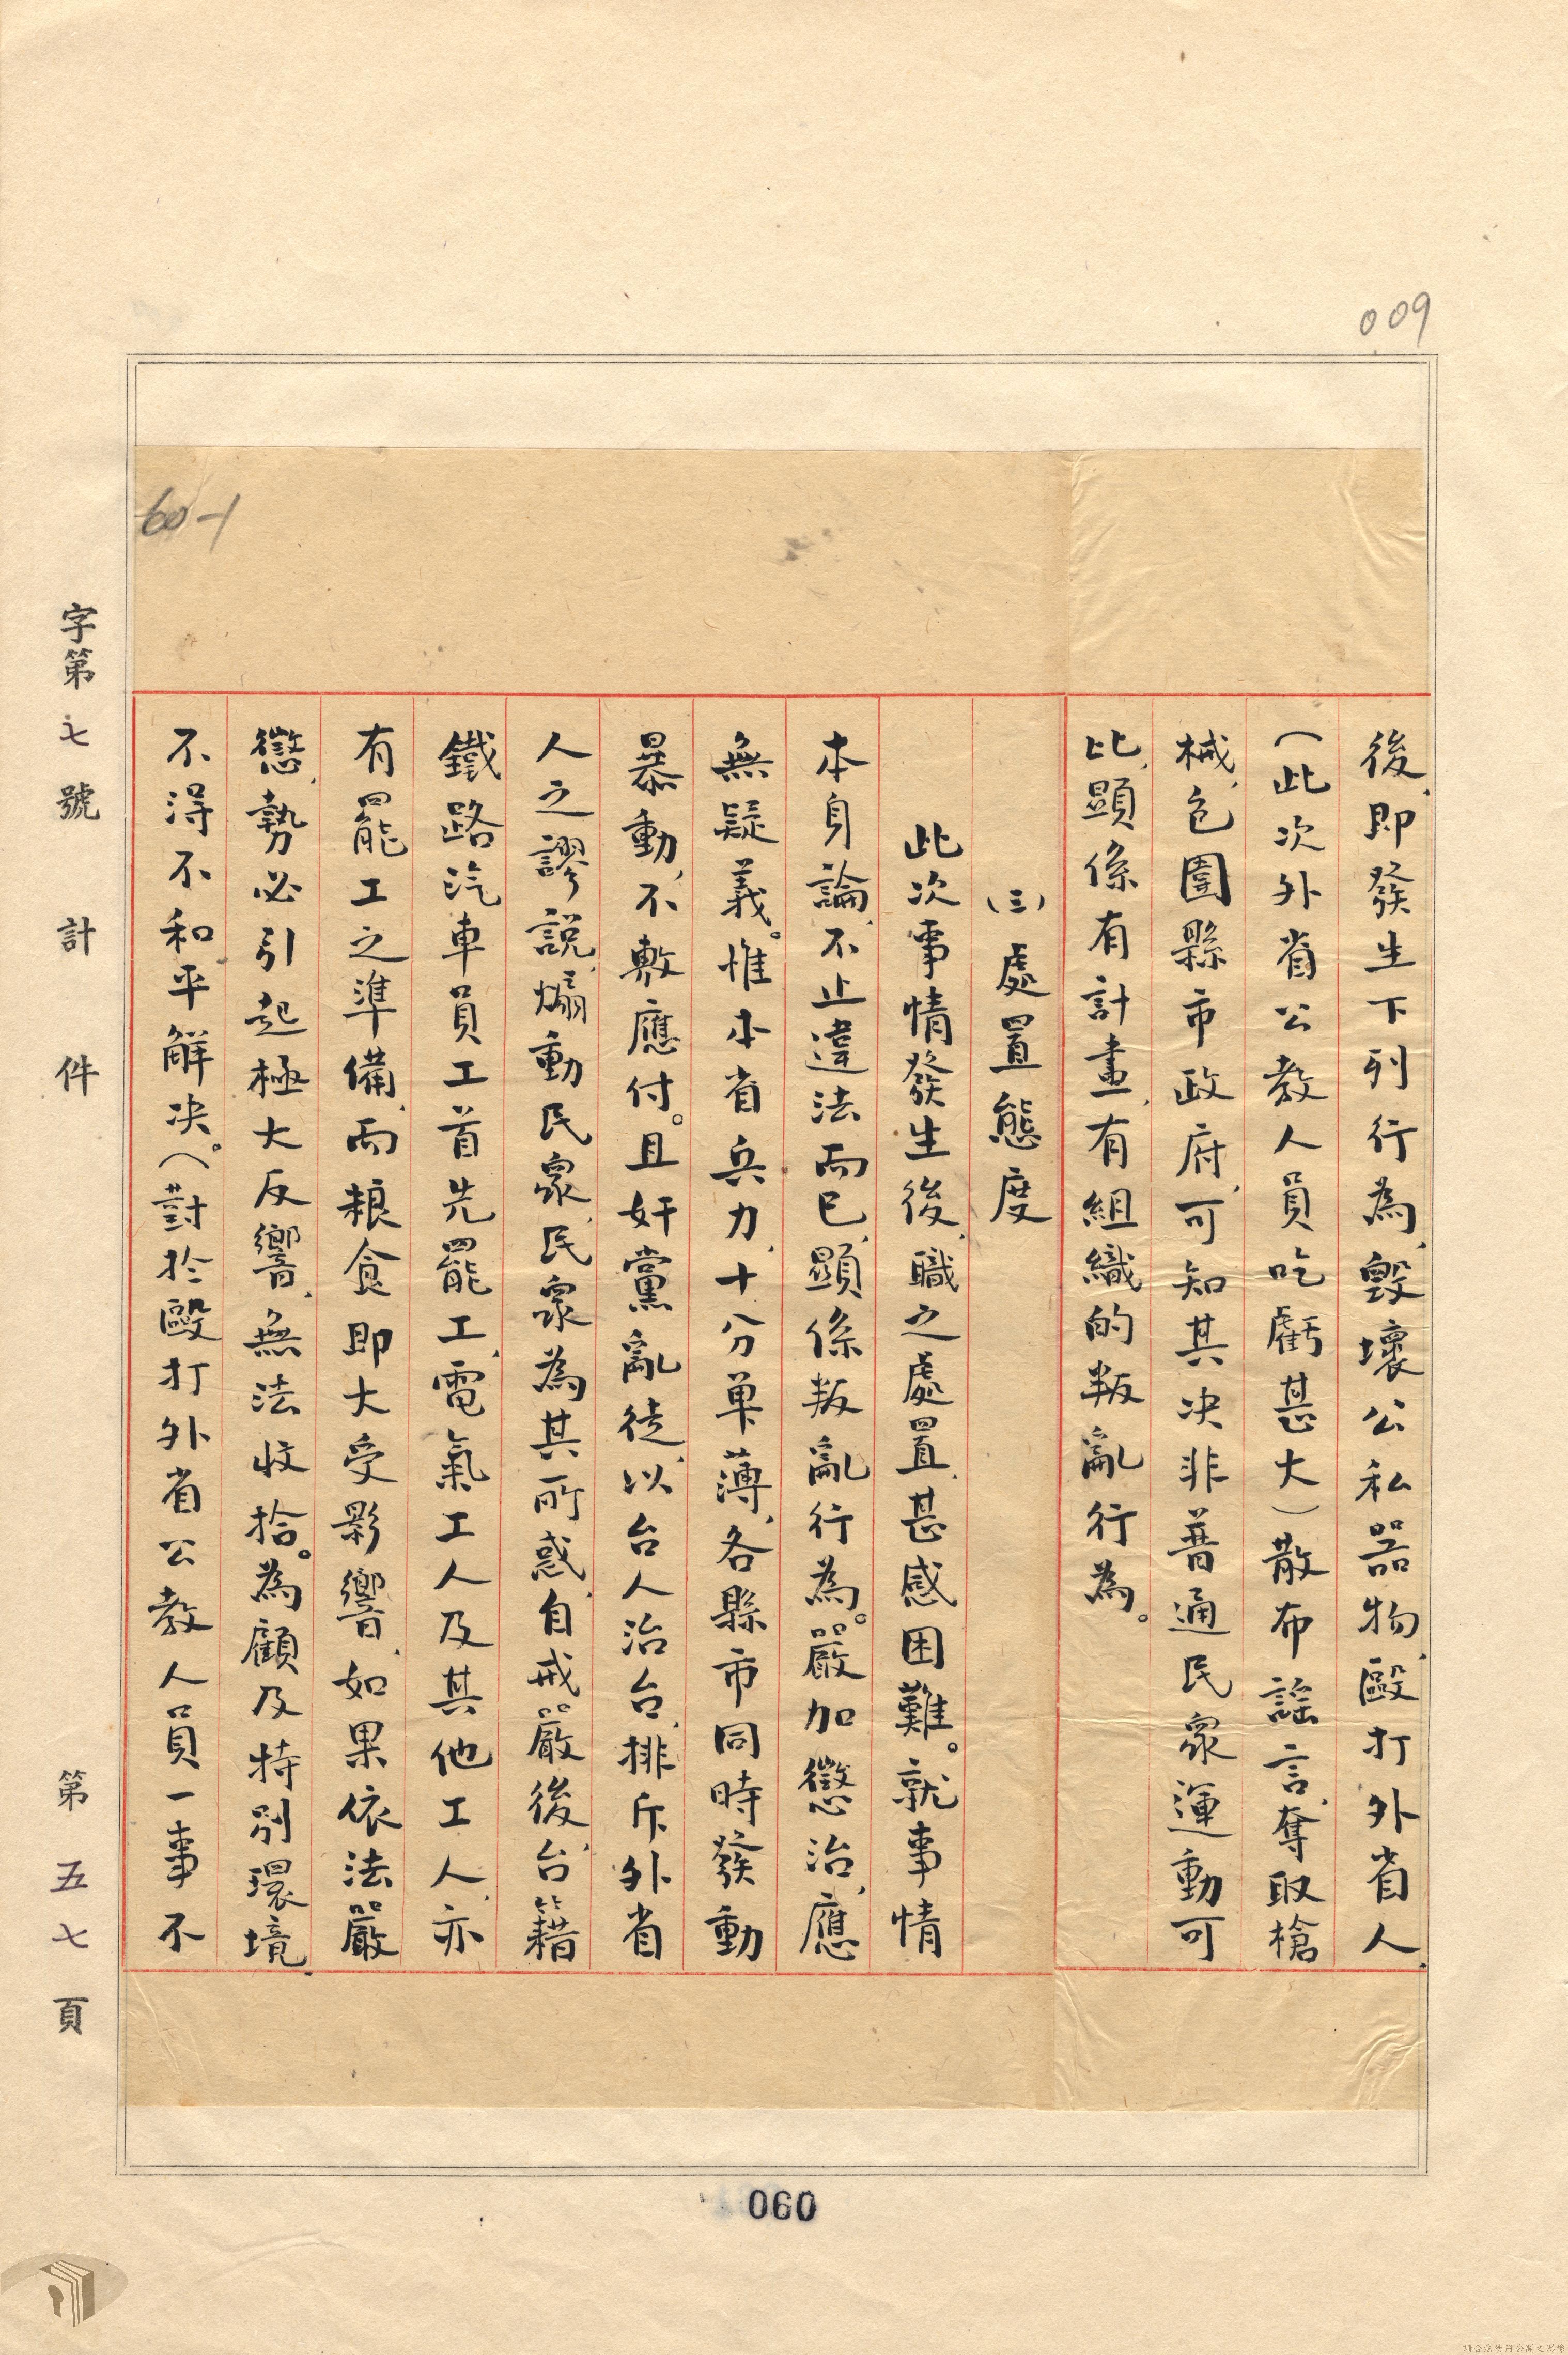 009
60-1
後，即發生下列行為，毀壞公私器物，毆打外省人，
（此次外省公教人員吃虧甚大）散布謠言，奪取槍
械，包圍縣市政府，可知其決非普通民眾運動可
比，顯係有計畫，有組織的叛亂行為。
（三）處置態度
此次事情發生後，職之處置，甚感困難。就事情
本身論，不止違法而已，顯係叛亂行為。嚴加懲治，應
無疑義。惟本省兵力，十分單薄，各縣市同時發動
暴動，不敷應付。且奸黨亂徒，以台人治台，排斥外省
人之謬說，煽動民眾，民眾為其所惑，自戒嚴後，台籍
鐵路汽車員工首先罷工，電氣工人及其他工人，亦
有罷工之準備，而粮食即大受影響，如果依法嚴
懲，勢必引起極大反響，無法收拾。為顧及特別環境，
不得不和平解決。（對於毆打外省公教人員一事不
字第七號 計 件 第五七頁
060
請合法使用公開之影像